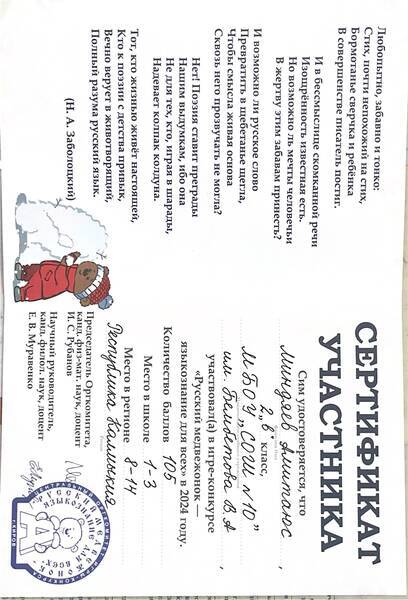 Любопытно, забавно и тонко:
Стих, почти непохожий на стих,
Бормотанье сверчка и ребёнка
В совершенстве писатель постиг.
И в бессмыслице скомканной речи
Изощрённость известная есть.
Но возможно ль мечты человечьи
В жертву этим забавам принесть?
И возможно ли русское слово
Превратить в щебетанье щегла,
Чтобы смысла живая основа
Сквозь него прозвучать не могла?
Нет! Поэзия ставит преграды
Нашим выдумкам, ибо она
Не для тех, кто, играя в шарады,
Надевает колпак колдуна.
Тот, кто жизнью живёт настоящей,
Кто к поэзии с детства привык,
Вечно верует в животворящий,
Полный разума русский язык.
(Н. А. Заболоцкий)
СЕРТИФИКАТ
УЧАСТНИКА
Сим удостоверяется, что
Миндяев Алитаюс,
2 „в" класс,
МБОУ „СОШ №10"
им. Бембетова В А,
участвовал(а) в игре-конкурсе
«Русский медвежонок —
языкознание для всех» в 2024 году.
Количество баллов 105
Место в школе 1-3
Место в регионе 8-14
Республика Калмыкия
Председатель Оргкомитета,
канд. физ-мат. наук, доцент
И. С. Рубанов
Научный руководитель,
канд. филол. наук, доцент
Е. В. Муравенко
РУССКИЙ МЕДВЕЖОНОК
ЯЗЫКОЗНАНИЕ ДЛЯ ВСЕХ